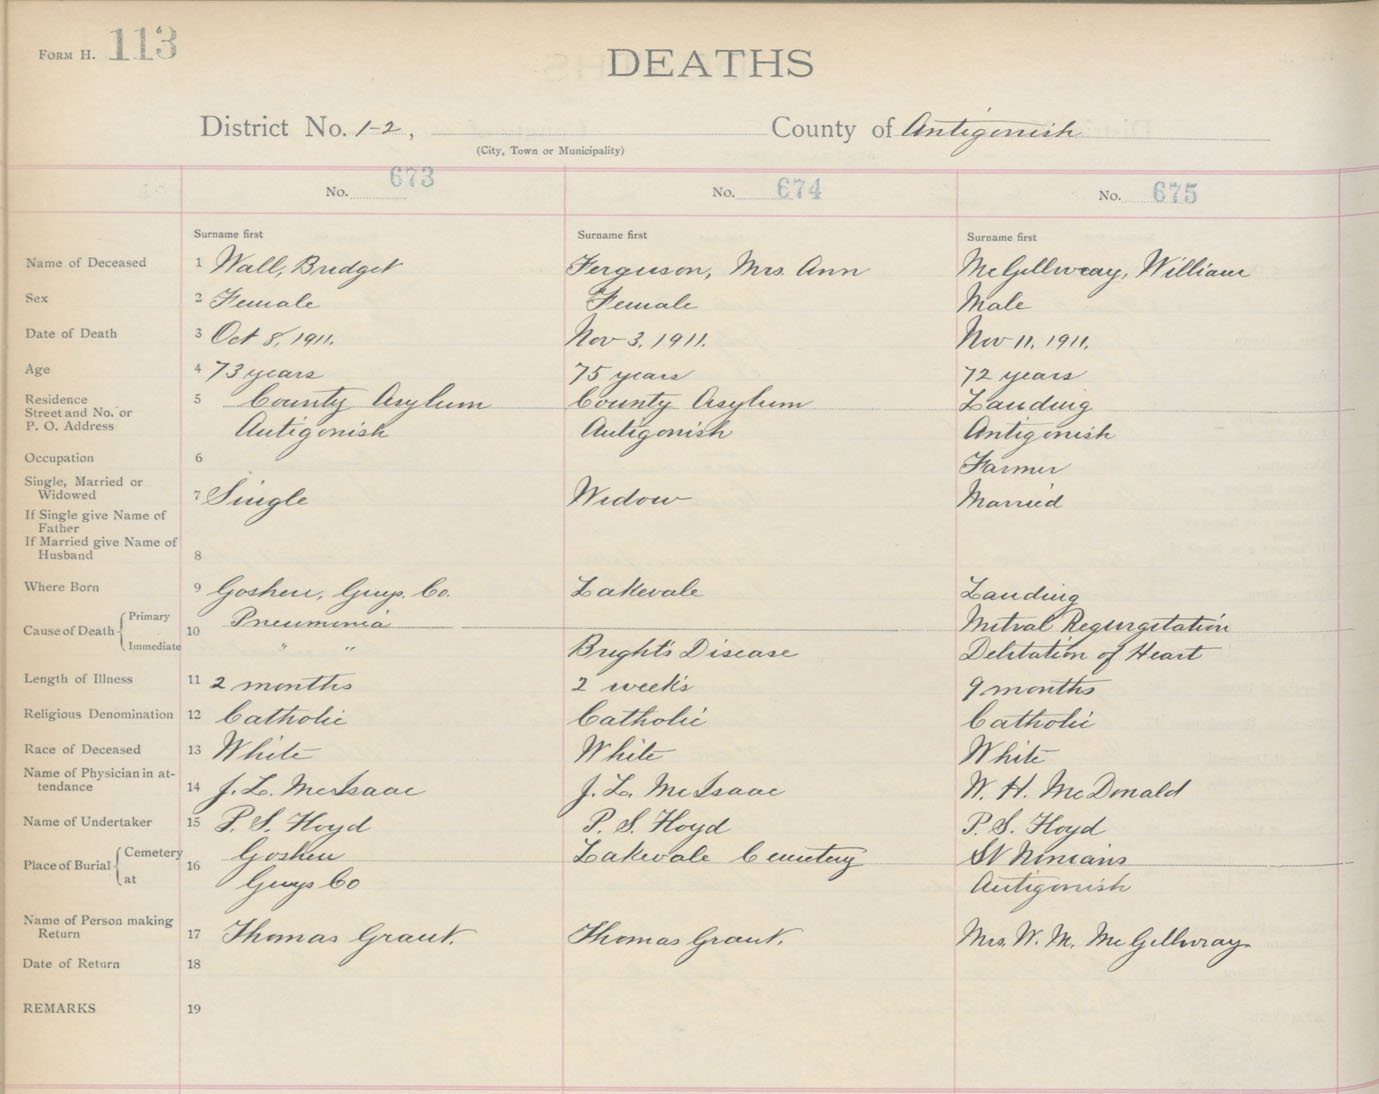 FORM H. 113
DEATHS
District No. 1-2, County of Antigonish
(City, Town or Municipality)
No. 673 No. 674 No. 675
Surname first Surname first Surname first
Name of Deceased 1 Wall, Bridget Ferguson, Mrs. Ann McGillivray, William
Sex 2 Female Female Male
Date of Death 3 Oct 8, 1911. Nov 3, 1911. Nov 11, 1911.
Age 4 73 years 75 years 72 years
Residence 5 County Asylum County Asylum Landing
Street and No. or
P. O. Address Antigonish Antigonish Antigonish
Occupation 6 Farmer
Single, Married or
Widowed 7 Single Widow Married
If Single give Name of
Father
If Married give Name of
Husband 8
Where Born 9 Goshen, Guys. Co. Lakevale Landing
Primary Pneumonia Mitral Regurgitation
Cause of Death 10
Immediate " " Bright's Disease Delitation of Heart
Length of Illness 11 2 months 2 weeks 9 months
Religious Denomination 12 Catholic Catholic Catholic
Race of Deceased 13 White White White
Name of Physician in at-
tendance 14 J. L. McIsaac J. L. McIsaac W. H. McDonald
Name of Undertaker 15 P. S. Floyd P. S. Floyd P. S. Floyd
Cemetery Goshen Lakevale Cemetery St Ninians
Place of Burial 16
at Guys Co Antigonish
Name of Person making
Return 17 Thomas Grant. Thomas Grant. Mrs. W. M. McGillivray
Date of Return 18
REMARKS 19